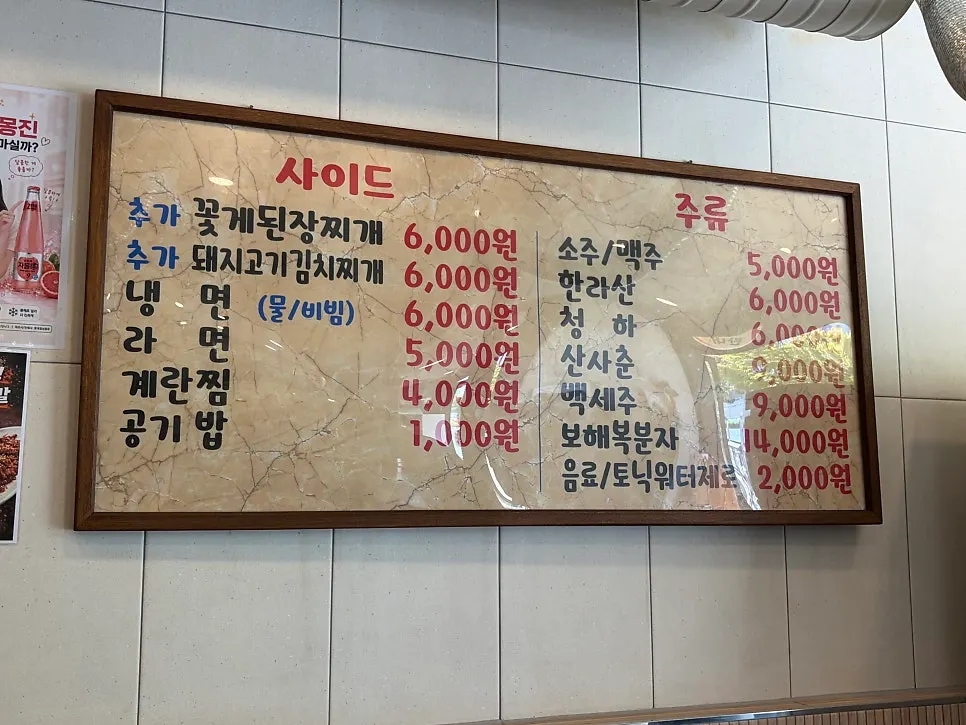 몽진
마실까?
사이드
추가 꽃게된장찌개 6,000원
추가 돼지고기김치찌개 6,000원
냉 면 (물/비빔) 6,000원
라 면 5,000원
계란찜 4,000원
공기밥 1,000원
주류
소주/맥주 5,000원
한라산 6,000원
청 하 6,000원
산사춘 9,000원
백세주 9,000원
보해복분자 14,000원
음료/토닉워터제로 2,000원